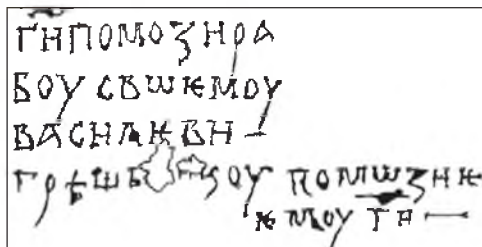 ГНПОМОЗНРА
БОУ СВШѤМОУ
ВАСНЛѤВН
ГРѢШЬ ЗОУ ПОМШЗНѤ
ѤМОУ ГН